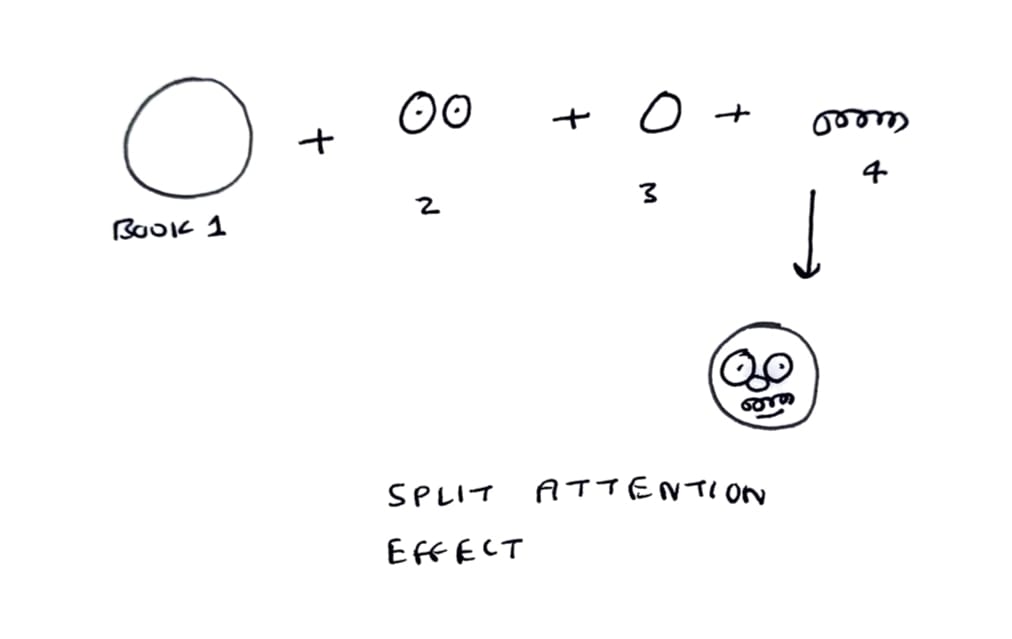 + + +
BOOK 1 2 3 4
SPLIT ATTENTION
EFFECT